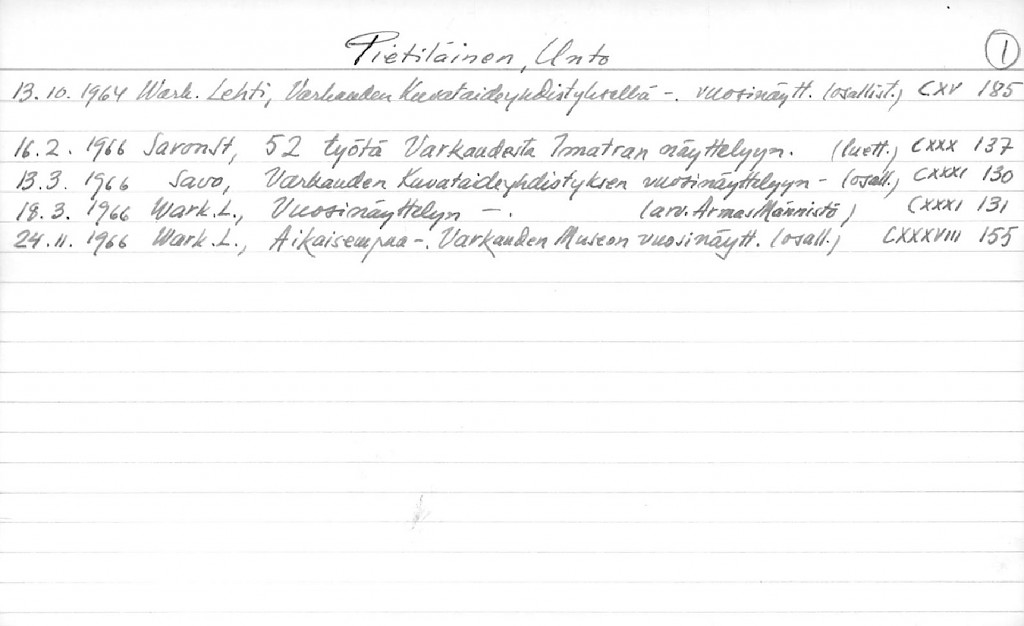 Pietiläinen, Unto 1
13.10.1964 Wark. Lehti, Varkauden Kuvataideyhdistyksellä -. vuosinäytt. (osallist.) CXV 185
16.2. 1966 SavonSt, 52 työtä Varkaudesta Imatran näyttelyyn. (luett.) CXXX 137
13.3. 1966 Savo, Varkauden Kuvataideyhdistyksen vuosinäyttelyyn - (osall.) CXXXI 130
18.3. 1966 Wark.L., Vuosinäyttelyn -. (arv. Armas Männistö) CXXXI 131
24.11. 1966 Wark.L., Aikaisempaa -. Varkauden Museon vuosinäytt. (osall.) CXXXVIII 155